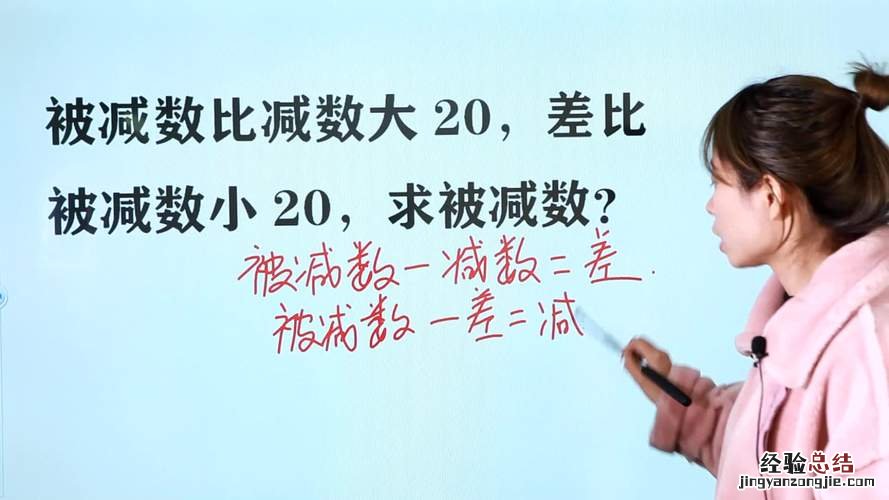 被减数比减数大 20，差比
被减数小 20，求被减数?
被减数－减数＝差.
被减数－差＝减
经验总结
jingyanzongjie.com